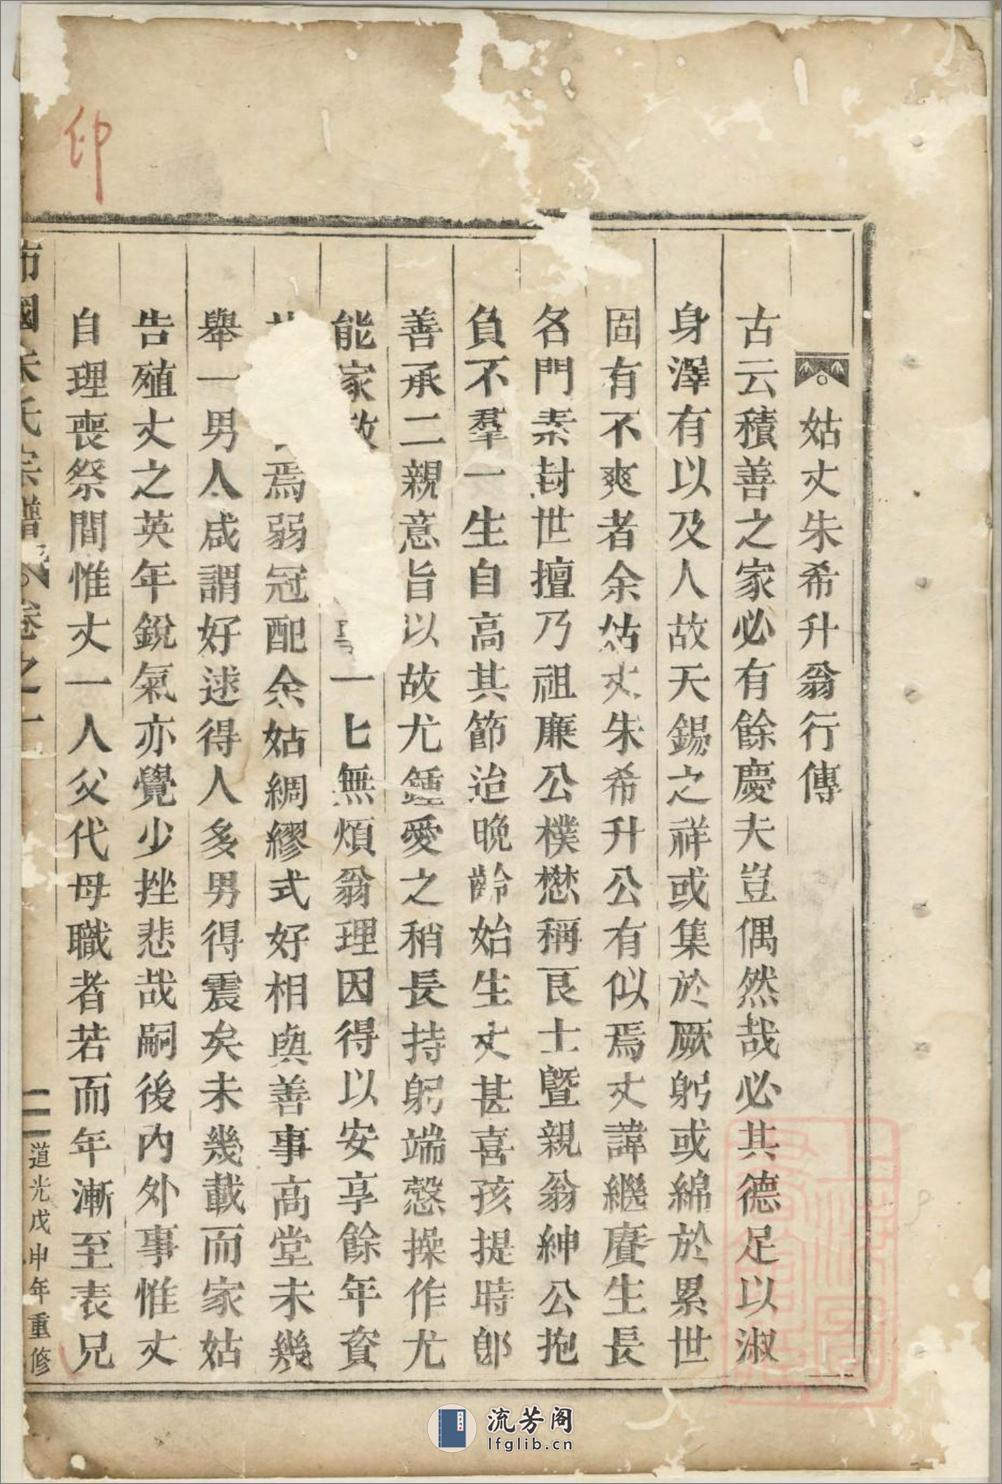 姑丈朱希升翁行傳
古云積善之家必有餘慶夫豈偶然哉必其德足以淑
身澤有以及人故天錫之祥或集於厥躬或綿於累世
固有不爽者余姑丈朱希升公有似焉丈諱繼賡生長
名門素封世擅乃祖廉公樸懋稱良士曁親翁紳公抱
負不羣一生自高其節治晚齡始生丈甚喜孩提時郎
善承二親意旨以故尤鍾愛之稍長持躬端慤操作尤
能家一匕無煩翁理因得以安享餘年資
焉弱冠配余姑綢繆式好相與善事高堂未幾
舉一男人咸謂好逑得人多男得震矣未幾載而家姑
告殖丈之英年銳氣亦覺少挫悲哉嗣後內外事惟丈
自理喪祭間惟丈一人父代母職者若而年漸至表兄
國朱氏宗譜 卷之一 二 道光戊申年重修
印
流芳阁
lfglib.cn